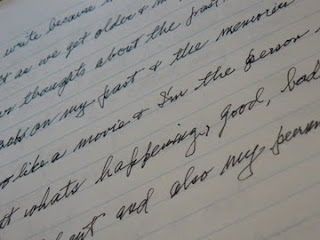 write because
as we get older &
thoughts about the past,
on my past & the memories
like a movie & I'm the person
whats happening, good, bad
and also my person